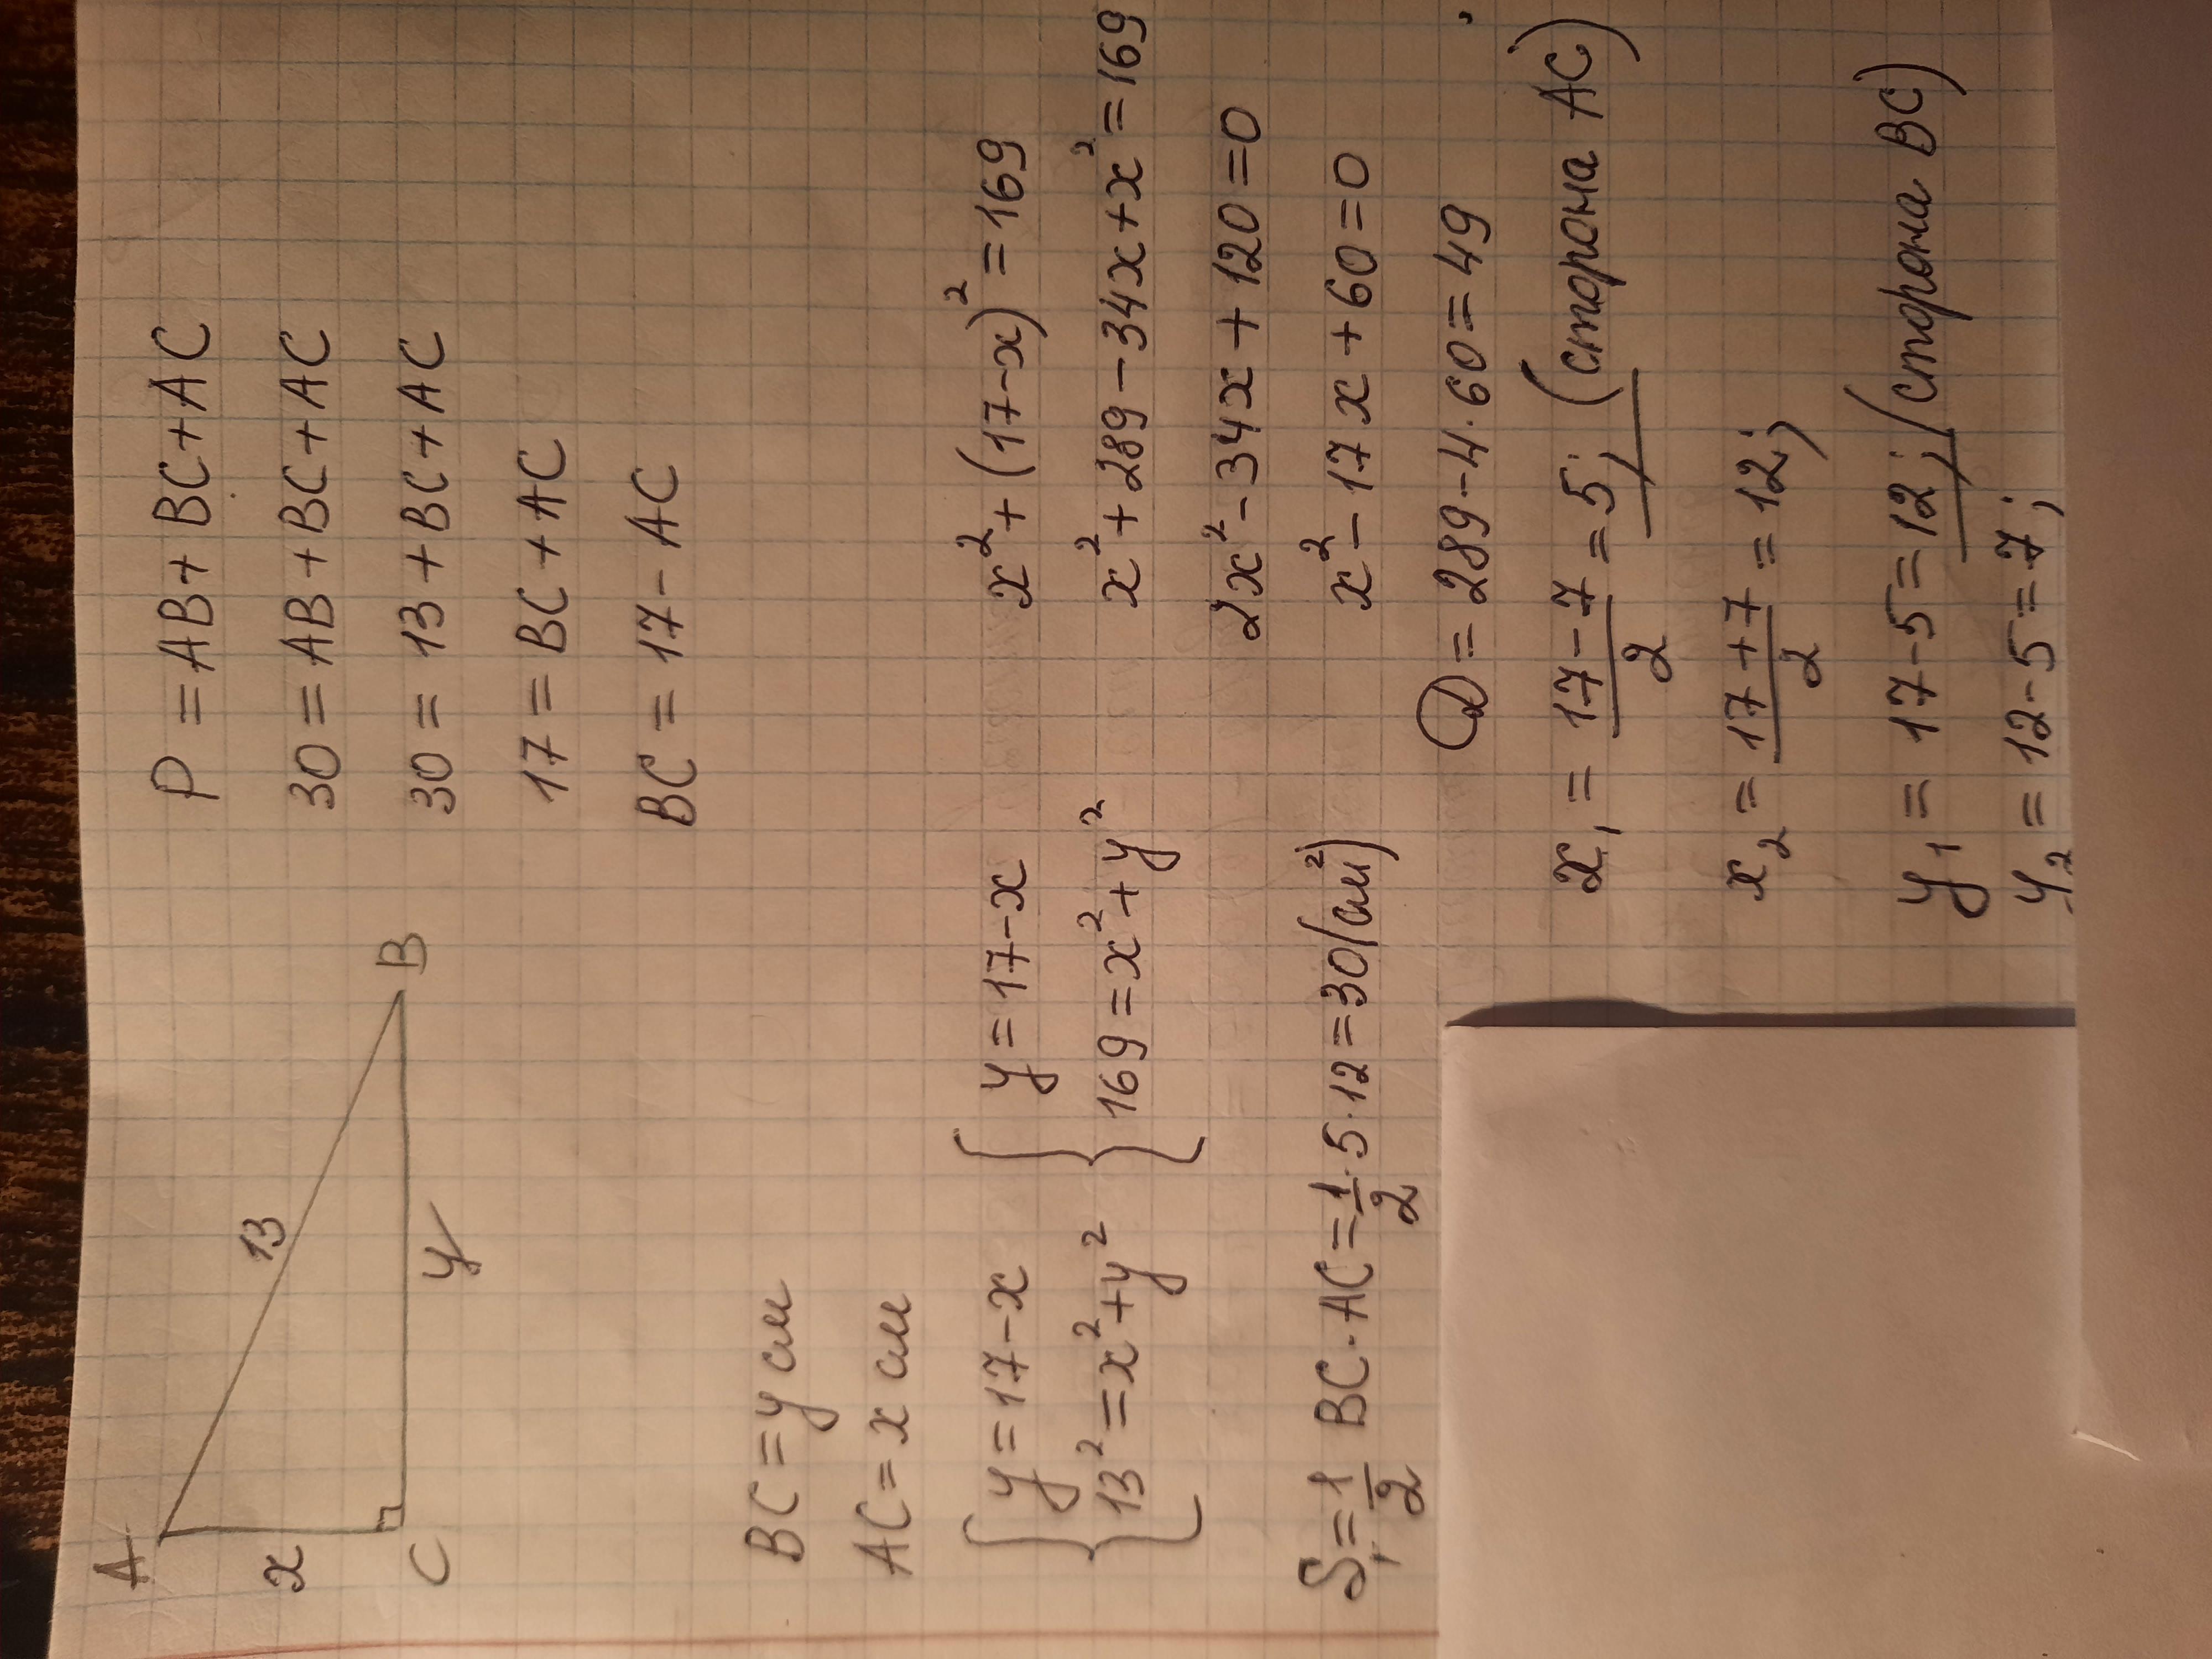 A
x
13
C
y
B
P = AB + BC + AC
30 = AB + BC + AC
30 = 13 + BC + AC
17 = BC + AC
BC = 17 - AC
BC = y см
AC = x см
{ y = 17 - x
13² = x² + y²
{ y = 17 - x
169 = x² + y²
x² + (17 - x)² = 169
x² + 289 - 34x + x² = 169
2x² - 34x + 120 = 0
x² - 17x + 60 = 0
D = 289 - 4·60 = 49
x₁ = (17 - 7)/2 = 5; (сторона AC)
x₂ = (17 + 7)/2 = 12;
y₁ = 17 - 5 = 12; (сторона BC)
y₂ = 12 - 5 = 7;
S₁ = 1/2 BC · AC = 1/2 · 5 · 12 = 30 (см²)